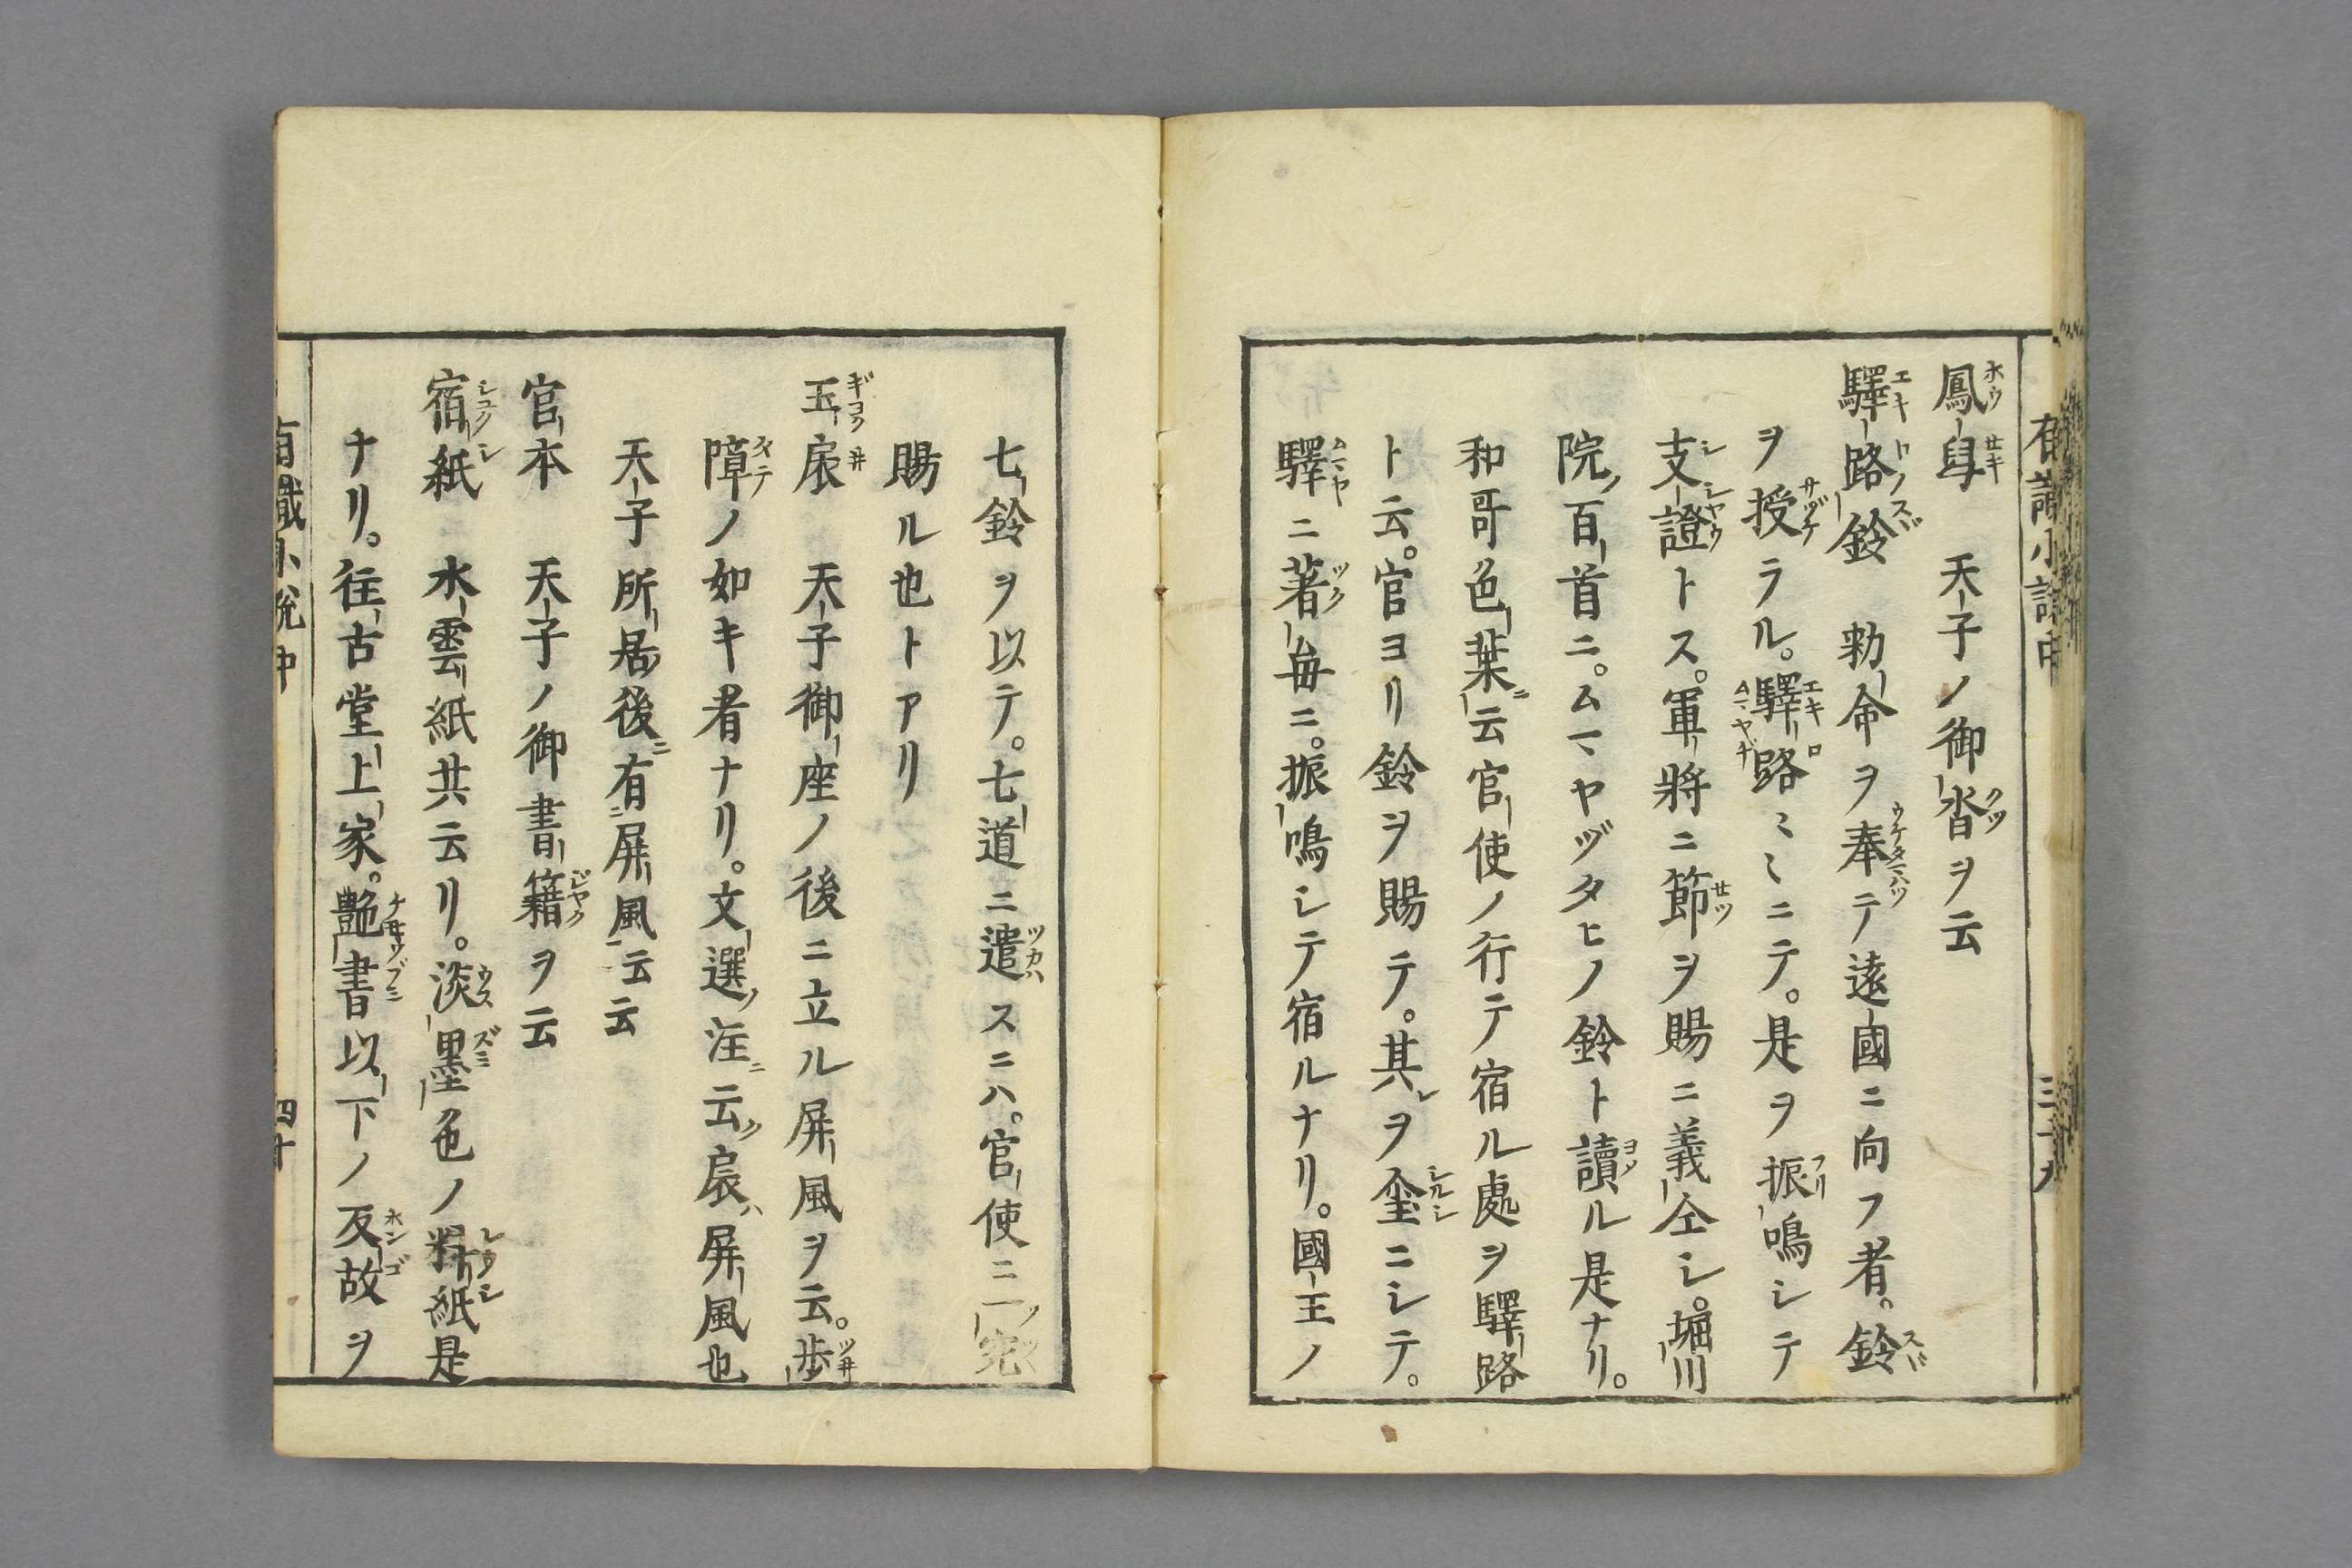 鳳舄 天子ノ御沓ヲ云
驛路鈴 勅命ヲ奉テ遠國ニ向フ者。鈴
ヲ授ラル。驛路〻〻ニテ。是ヲ振鳴シテ
支證トス。軍將ニ節ヲ賜ニ義仝シ。堀川
院ノ百首ニ。ムマヤヅタヒノ鈴ト讀ル是ナリ。
和哥色葉ニ云官使ノ行テ宿ル處ヲ驛路
ト云。官ヨリ鈴ヲ賜テ。其レヲ璽ニシテ。
驛ニ著毎ニ。振鳴シテ宿ルナリ。國王ノ
七鈴ヲ以テ。七道ニ遣スニハ。官使ニ一ノ宛
賜ル也トアリ
玉扆 天子御座ノ後ニ立ル屏風ヲ云。歩
障ノ如キ者ナリ。文選ノ注ニ云ク扆ハ屏風也
天子所居後ニ有屏風云云
官本 天子ノ御書籍ヲ云
宿紙 水雲紙共云リ。淡墨色ノ料紙是
ナリ。往古堂上家。艶書以下ノ反故ヲ
有職小説中 四十